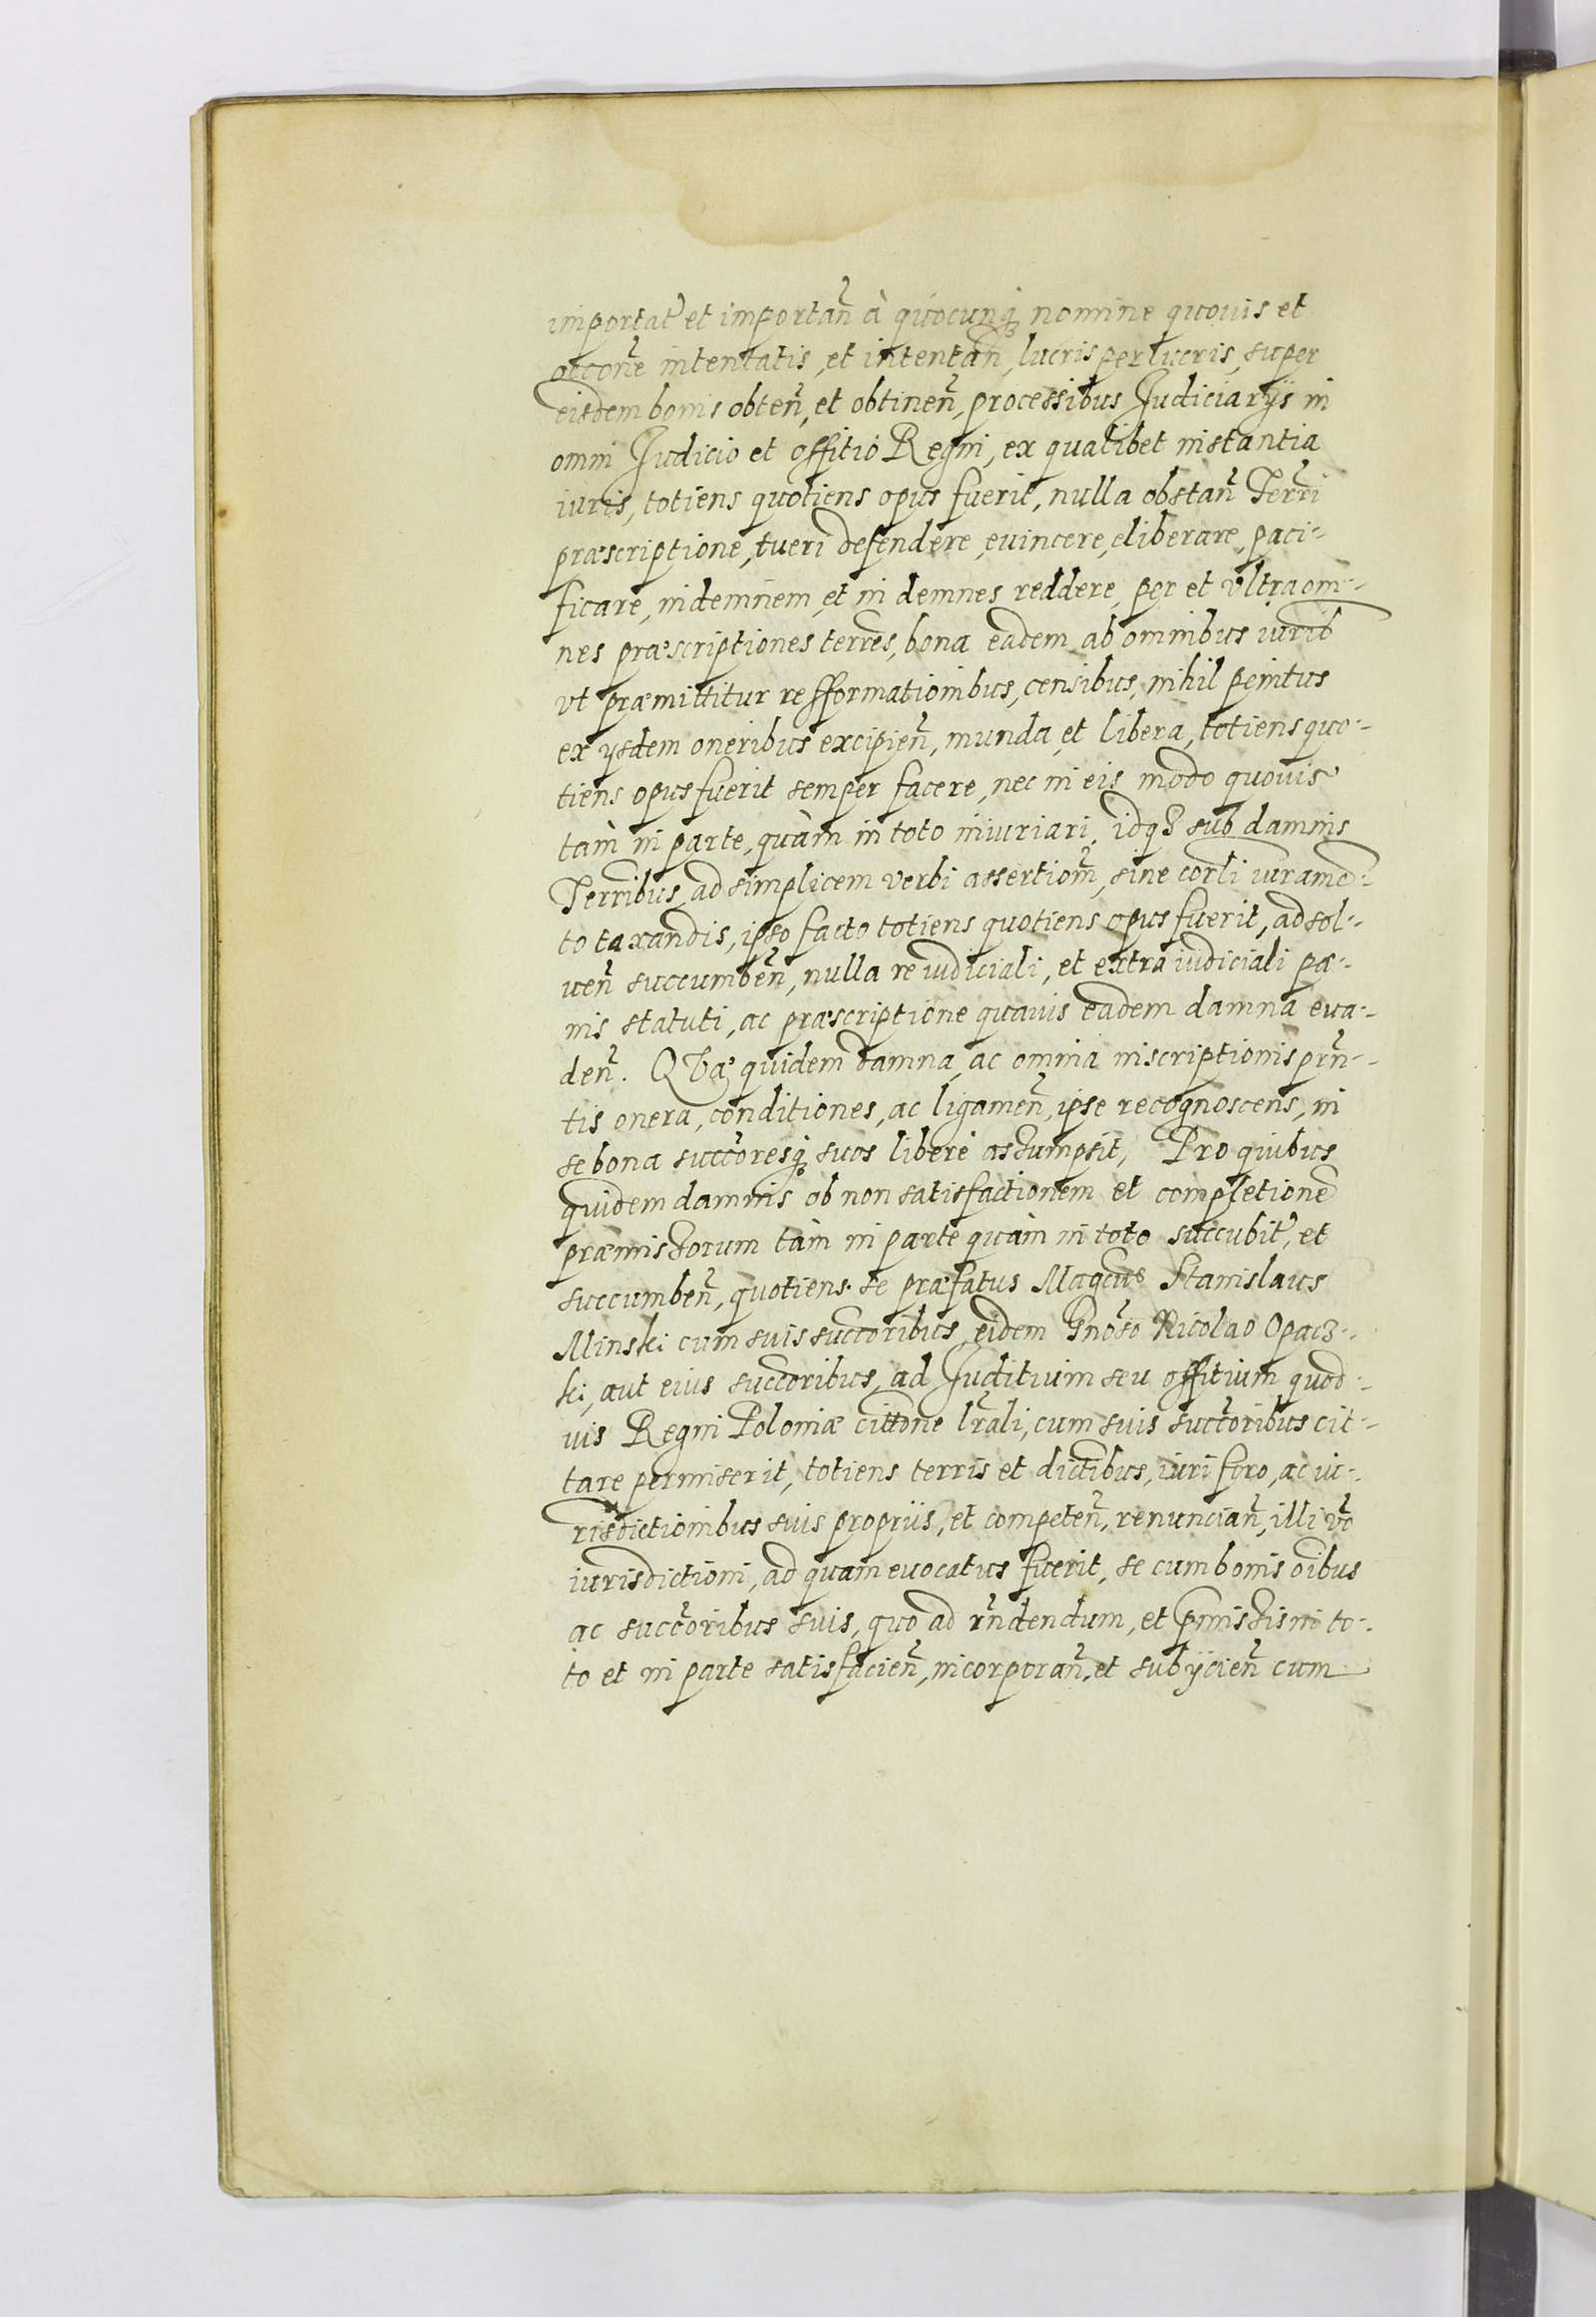 importat et importan̄ à quocunq́ nomine quouis et
occone intentatis, et intentan̄, lucris perlucris, super
eisdem bonis obten̄, et obtinen̄, processibus Judiciarijs in
omni Judicio et offitio Regni, ex qualibet instantia
iuris, totiens quotiens opus fuerit, nulla obstan̄ Terri
præscriptione, tueri defendere, euincere, eliberare, paci-
ficare, indemnem, et in demnes reddere, per et vltra om-
nes præscriptiones terres, bona eadem ab omnibus iurib
vt præmittitur refformationibus, censibus, nihil penitus
ex ysdem oneribus excipien̄, munda et libera, totiens quo-
tiens opus fuerit semper facere, nec in eis modo quouis
tàm in parte, quàm in toto iniuriari, idqȝ sub damnis
Terribus, ad simplicem verbi assertiom̄, sine corli iurame-
to taxandis, ipso facto totiens quotiens opus fuerit, ad sol-
uen̄ succumben̄, nulla re iudiciali, et extra iudiciali pæ-
nis statuti, ac præscriptione quauis eadem damna eua-
den̄. QVæ quidem damna, ac omnia inscriptionis prn̄-
tis onera, conditiones, ac ligamen̄, ipse recognoscens, in
se bona succoresq́ suos liberè assumpsit, Pro quibus
quidem damnis ob non satisfactionem et completione
præmissorum tàm in parte quàm in toto succubit, et
succumben̄, quotiens se præfatus Magcus Stanislaus
Minski cum suis succoribus, eidem Gnoso Nicolao Opacz-
ki, aut eius succoribus, ad Juditium seu offitium quod-
uis Regni Poloniæ cittone lrali, cum suis succoribus cit-
tare permiserit, totiens terris et dictibus, iuri foro, ac iu-
risdictionibus suis propriis, et competen̄, renuncian̄, illi vo
iurisdictioni, ad quam euocatus fuerit, se cum bonis oibus
ac succoribus suis, quo ad rn̄dendum, et pmissis in to-
to et in parte satisfacien̄, incorporan̄, et subijcien̄ cum